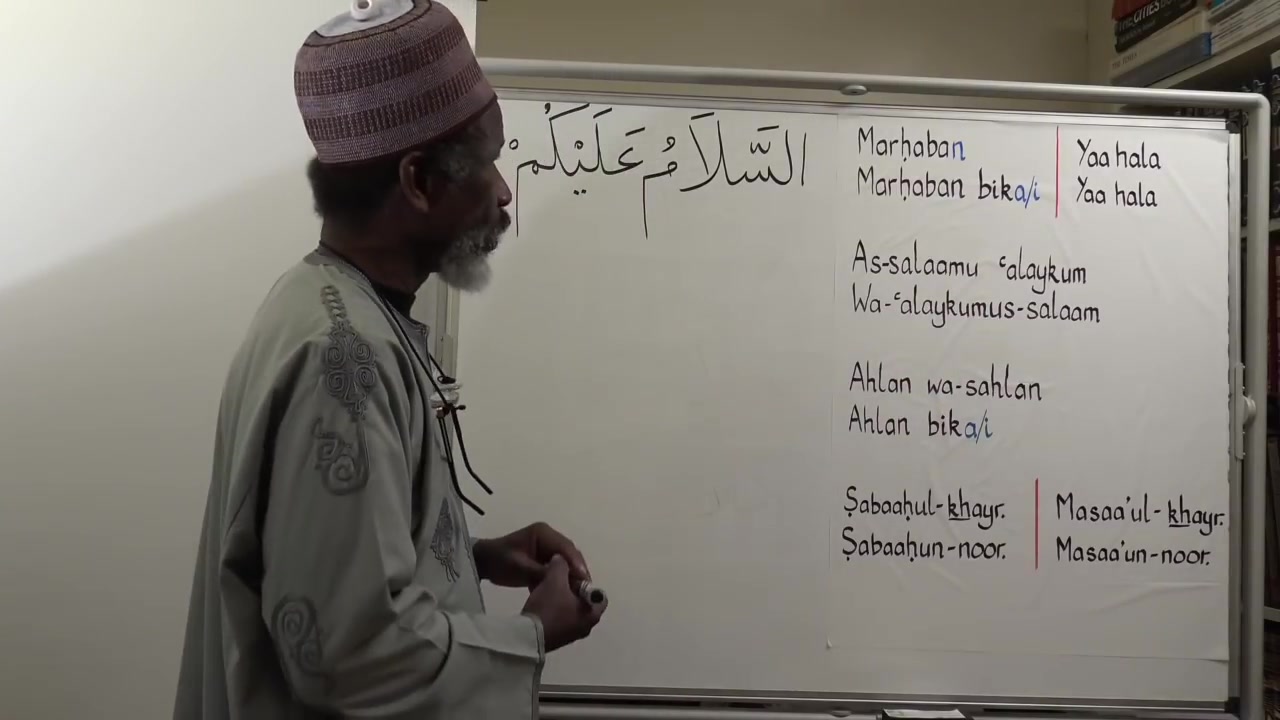 السَّلاَمُ عَلَيْكُمْ
Marḥaban
Marḥaban bika/i
Yaa hala
Yaa hala
As-salaamu ʿalaykum
Wa-ʿalaykumus-salaam
Ahlan wa-sahlan
Ahlan bika/i
Ṣabaaḥul-khayr.
Ṣabaaḥun-noor.
Masaa'ul-khayr.
Masaa'un-noor.